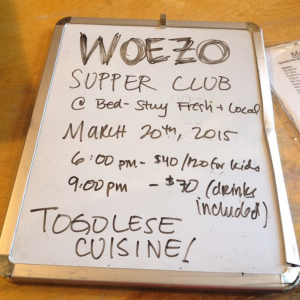 WOEZO
SUPPER CLUB
@ Bed-Stuy Fresh + Local
MARCH 20TH, 2015
6:00 pm - $40 /$20 for kids
9:00pm - $70 (drinks
included)
TOGOLESE
CUISINE!